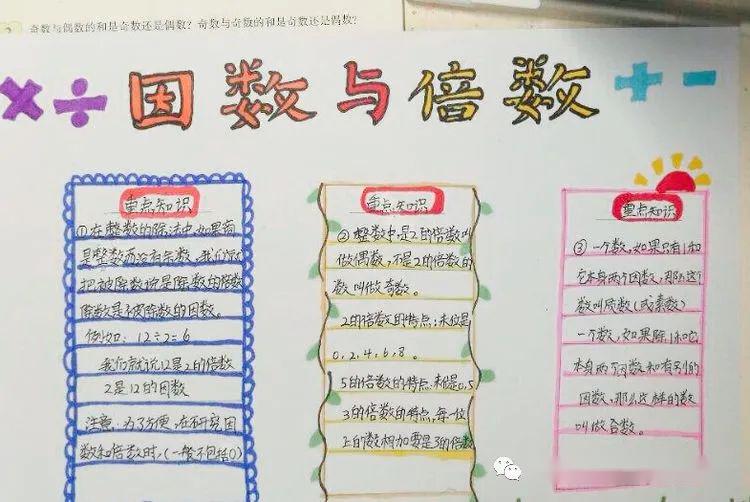 奇数与偶数的和是奇数还是偶数？奇数与奇数的和是奇数还是偶数？
×÷因数与倍数+-
重点知识
①在整数的除法中,如果商
是整数而没有余数,我们就
把被除数说是除数的倍数
除数是被除数的因数。
例如:12÷2=6
我们就说12是2的倍数
2是12的因数
注意:为了方便,在研究因
数和倍数时,(一般不包括0)
重点知识
②整数中,是2的倍数叫
做偶数,不是2的倍数的
数叫做奇数。
2的倍数的特点:末位是
0,2,4,6,8。
5的倍数的特点:末位是0,5
3的倍数的特点,每一位
上的数相加要是3的倍数
重点知识
③一个数,如果只有1和
它本身两个因数,那么这个
数叫质数(或素数)
一个数,如果除1和它
本身两个因数和有别的
因数,那么这样的数
叫做合数。